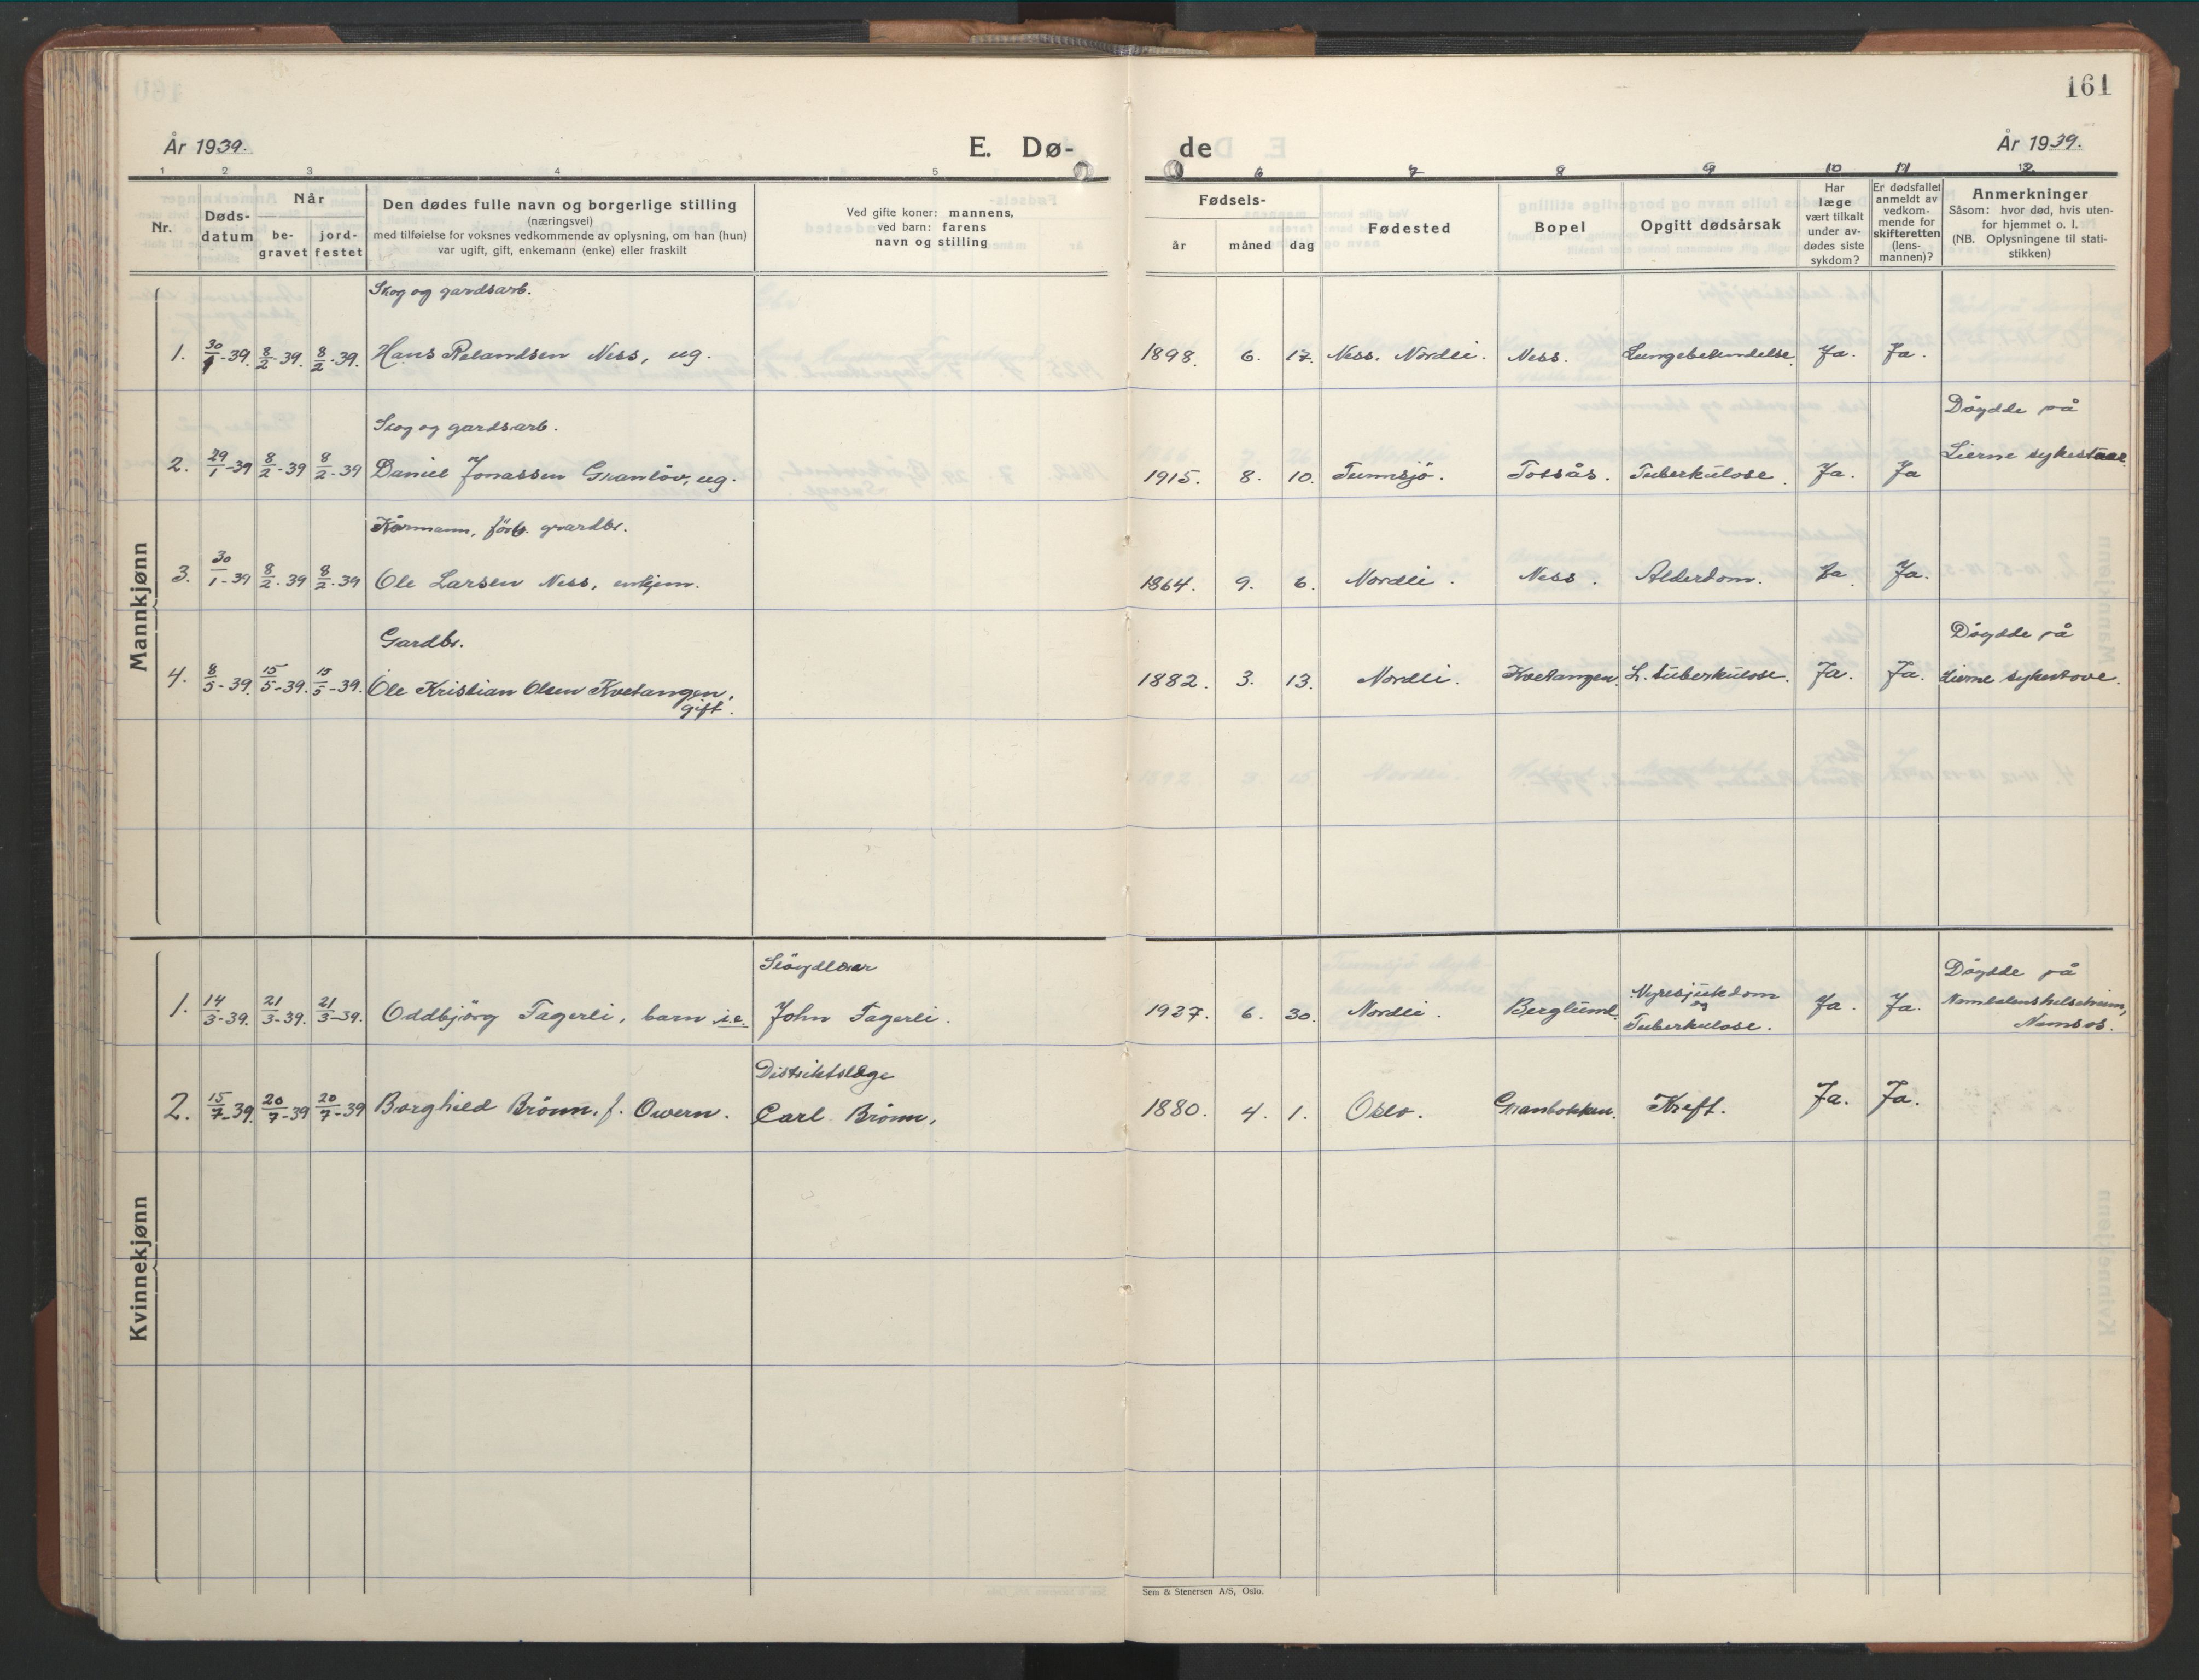 161
År 1939.
E. Dø-
de
År 1939.
1 2 3 4 5 6 7 8 9 10 11 12
Nr.
Døds-
datum
Når
be-
gravet
jord-
festet
Den dødes fulle navn og borgerlige stilling
(næringsvei)
med tilføielse for voksnes vedkommende av oplysning, om han (hun)
var ugift, gift, enkemann (enke) eller fraskilt
Ved gifte koner: mannens,
ved barn: farens
navn og stilling
Fødsels-
år måned dag
Fødested
Bopel
Opgitt dødsårsak
Har
læge
vært tilkalt
under av-
dødes siste
sykdom?
Er dødsfallet
anmeldt av
vedkom-
mende for
skifteretten
(lens-
mannen)?
Anmerkninger
Såsom: hvor død, hvis uten-
for hjemmet o. l.
(NB. Oplysningene til stati-
stikken)
Mannkjønn
Skog og gardsarb.
1. 30/1-39. 8/2-39. 8/2-39. Hans Relandsen Ness, ug. 1898. 6. 17. Ness. Nordli. Ness. Lungebetendelse. Ja. Ja.
Skog og gardsarb. Döydde på
2. 29/1-39 8/2-39 8/2-39 Daniel Jonassen Granlöv, ug. 1915. 8. 10. Tunnsjö. Totsås. Tuberkulose. Ja. Ja Lierne sykestove
Kårmann, förb. gardbr.
3. 30/1-39 8/2-39 8/2-39 Ole Larsen Ness, enkjem. 1864. 9. 6. Nordli. Ness. Alderdom. Ja Ja.
Gardbr. Döydde på
4. 8/5-39. 15/5-39. 15/5-39. Ole Kristian Olsen Kvetangen, 1882. 3. 13. Nordli. Kvetangen. L. tuberkulose. Ja. Ja. Lierne sykestove.
gift.
Kvinnekjønn
Slöydlærar Nyresjukdom Döydde på
1. 14/3-39. 21/3-39. 21/3-39. Oddbjörg Fagerli, barn i.e. John Fagerli. 1937. 6. 30. Nordli. Berglund. og Ja. Ja. Namdalens helseheim,
Tuberkulose. Namsos.
Distriktslæge
2. 15/7-39. 20/7-39 20/7-39 Borghild Brönn, f. Owern. Carl Brönn, 1880. 4. 1. Oslo. Granbakken. Kreft. Ja. Ja.
Sem & Stenersen A/S, Oslo.